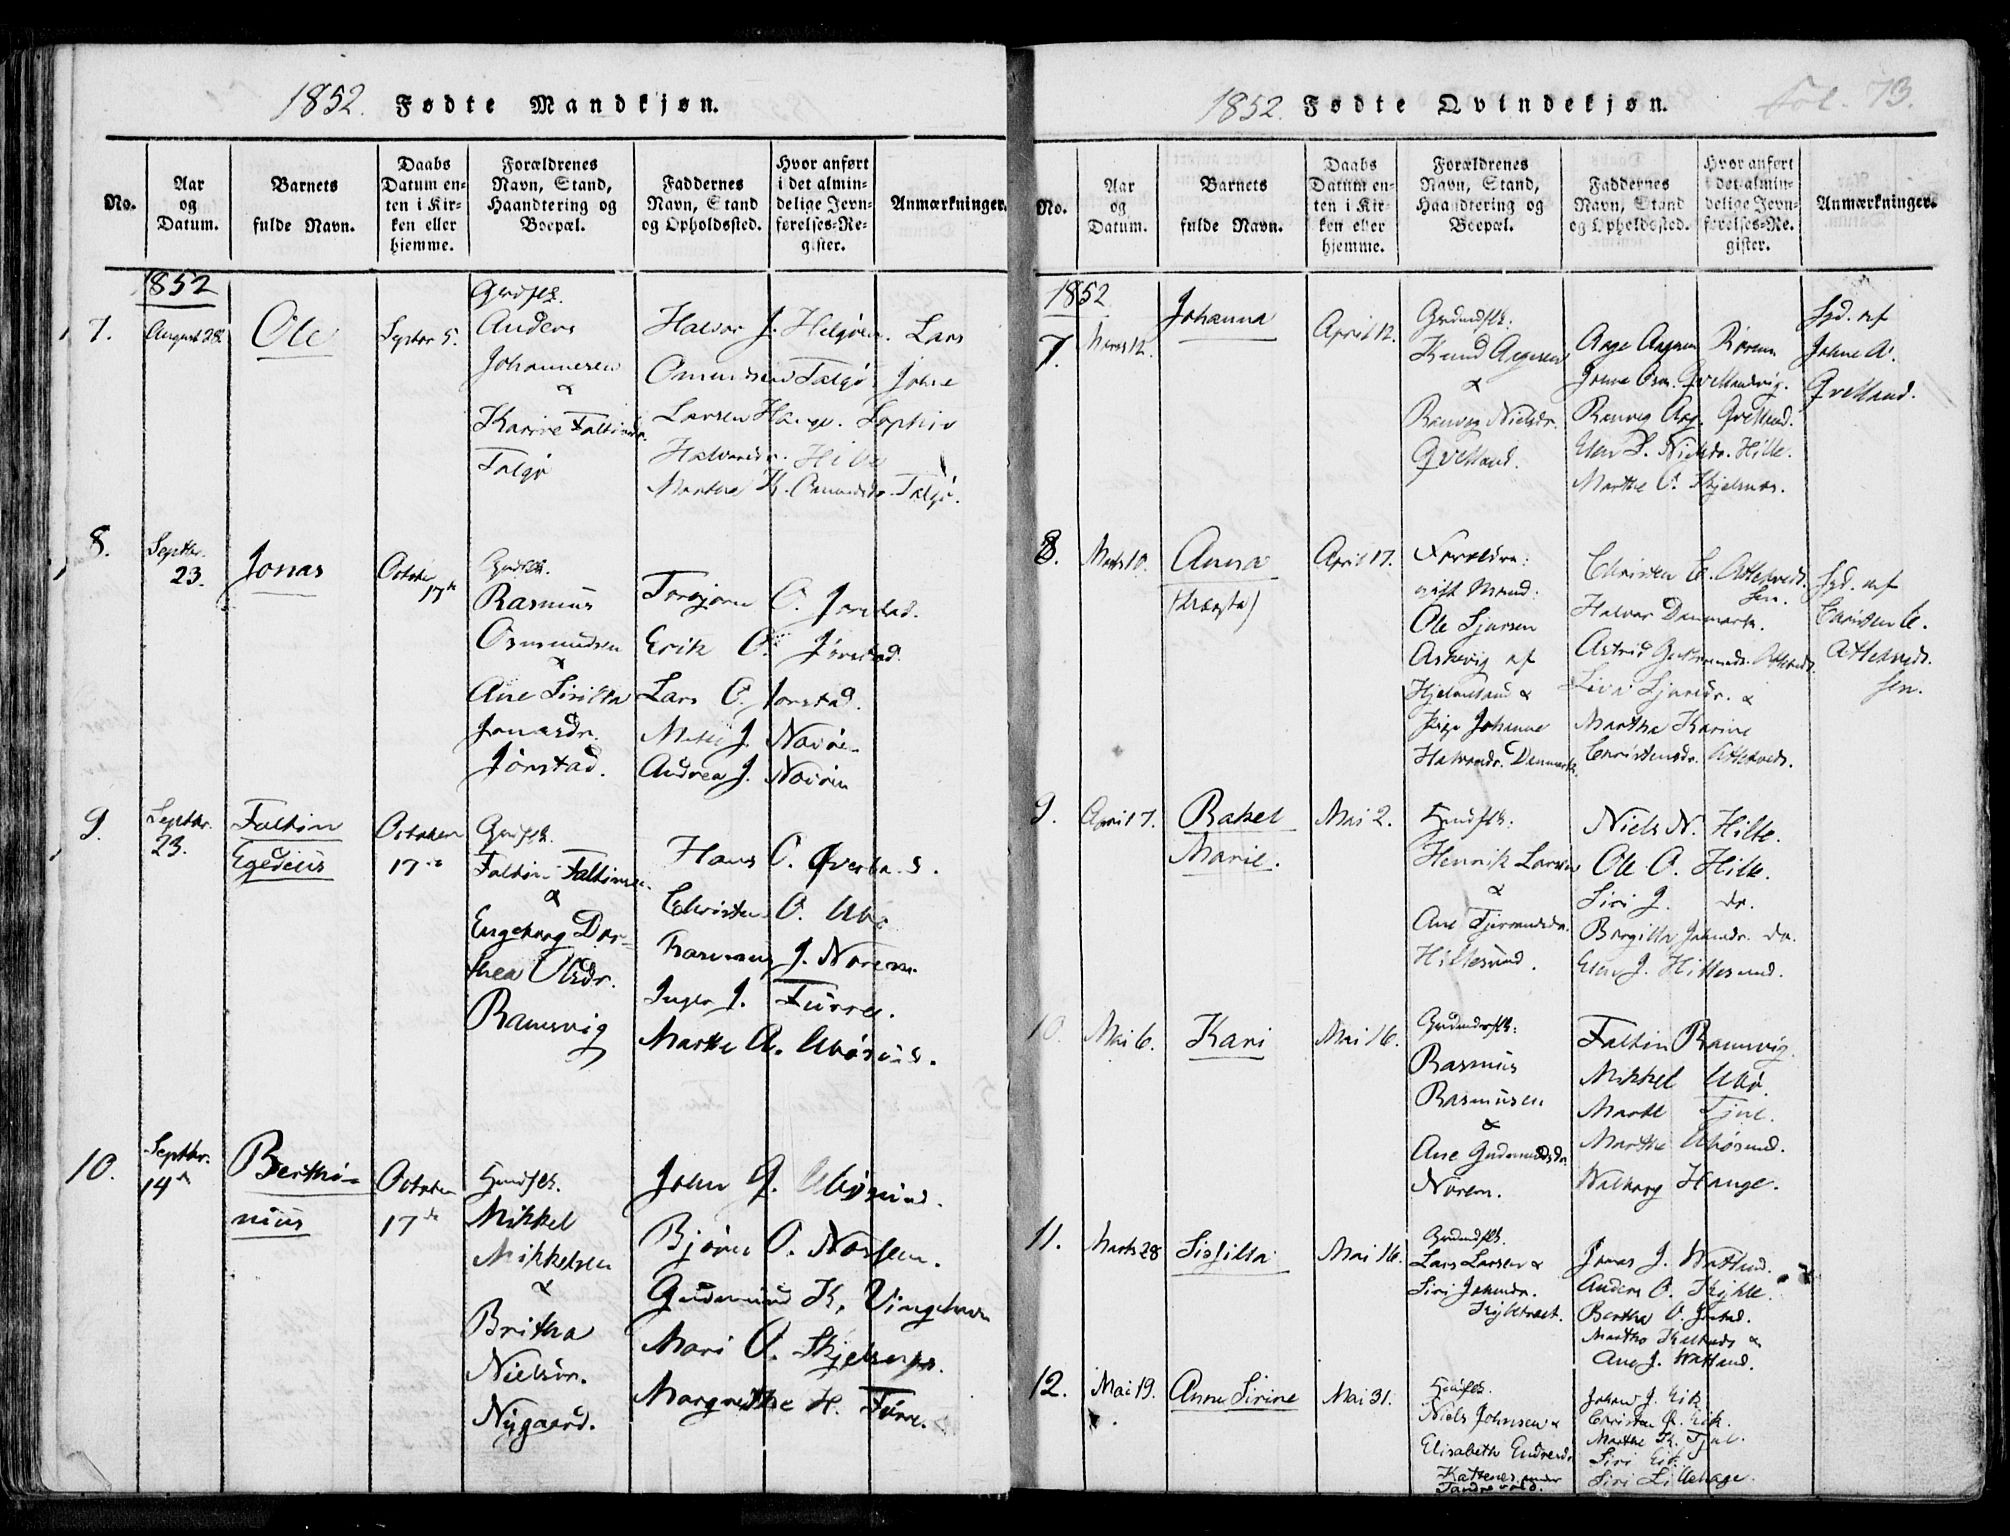 1852. Fødte Mandkjøn.
No.
Aar
og
Datum.
Barnets
fulde Navn.
Daabs
Datum en-
ten i Kir-
ken eller
hjemme.
Forældrenes
Navn, Stand,
Haandtering og
Boepæl.
Faddernes
Navn, Stand
og Opholdssted.
Hvor anført
i det almin-
delige Jevn-
førelses-Re-
gister.
Anmærkninger.
1852
7.
August 28.
Ole
Septbr 5.
Anders
Johannesen
&
Karine Faltinsdr.
Talgø
Halvor J. Helgøen. Lars
Omundsen Talgø. Johe
Larsen Hauge. Sophie
Halvordr. Hille
Marthe K. Omundsdr. Talgø.
8.
Septbr.
23.
Jonas
October
17de
Rasmus
Osmundsen
&
Ane Sirilla
Jonasdr.
Jørstad.
Torbjørn O. Jørstad.
Erik O. Jørstad.
Lars O. Jørstad.
J. Navøen
Andrea J. Navøen
9.
Septbr.
23.
Faltin
Egedeus
October
17de
Faltin Faltinsen
&
Engeborg Dor-
thea Olsdr.
Ramsvig
Hans O.
Christen O. Ubø
Rasmus J. Norem.
Inger J. Furre.
Marthe A. Ubøsund.
10.
Septbr.
14de
Berthi-
nius
October
17de
Husfsk.
Mikkel
Mikkelsen
&
Britha
Nielsdr.
Nygaard.
John G. Ubøsund.
Bjørn O. Norsen.
Gudmund K. Vingelven
Mari O. Skjelnæs.
Margrethe H. Furre.
1852. Fødte Qvindekjøn.
Fol. 73.
No.
Aar
og
Datum.
Barnets
fulde Navn.
Daabs
Datum en-
ten i Kir-
ken eller
hjemme.
Forældrenes
Navn, Stand,
Haandtering og
Boepæl.
Faddernes
Navn, Stand
og Opholdssted.
Hvor anført
i det almin-
delige Jevn-
førelses-Re-
gister.
Anmærkninger.
1852
7.
Marts 12.
Johanna
April 12.
Grdmdfsk:
Knud Aagesen
&
Ranveg Nielsdr.
Qvelland.
Aage Aagesen
Johne Osm. Qvellandvig.
Ranveg Aag. Qvelland.
Elen S. Nielsdr. Hille.
Marthe O. Skjelnæs.
Sgd. af
Johne A.
Qvelland.
8.
Marts 10.
Anna
(Uægte)
April 17.
Forældre:
gift Mand:
Ole Sjursen
Askevig af
Hjelmeland &
Pige Johanne
Halvordr. Danmark.
Christen C. Attekveds.
sen.
Halvor Danmark.
Astrid Gudmunds. Attekveds.
Siva Sjursdr. &
Marthe Karine
Christensdr. Attekveds.
Sgd. af
Christen C.
Attekveds.
sen.
9.
April 7.
Rakel
Marie.
Mai 2.
Husfsk:
Henrik Larsen
&
Ane Tjerandsdr.
Hillesund.
Niels N. Hille.
Ole O. Hille.
Siri J. do.
Borgilla Johnsdr. do.
Elen J. Hillesund.
10.
Mai 6.
Kari
Mai 16.
Rasmus
Rasmusen
&
Ane Gudmundsdr.
Norem.
Faltin Ramsvig.
Mikkel Ubø.
Marthe Tjul.
Marthe Ubøsund.
Walborg Hauge.
11.
Marts 28
Sissilla
Mai 16.
Grdmdfsk.
Lars Larsen &
Siri Johnsdr.
Jonas J. Watland.
Anders O. Kyhle.
Bertha O.
Ane J. Watland.
12.
Mai 19.
Anne Sirine
Mai 31.
Husfsk.
Niels Johnsen &
Elisabeth Endresdr.
Kattenes under
Tandrevold.
Johan J. Eik
Christen Eik.
Marthe K. Tjul.
Siri Eik.
Siri Lillehage.